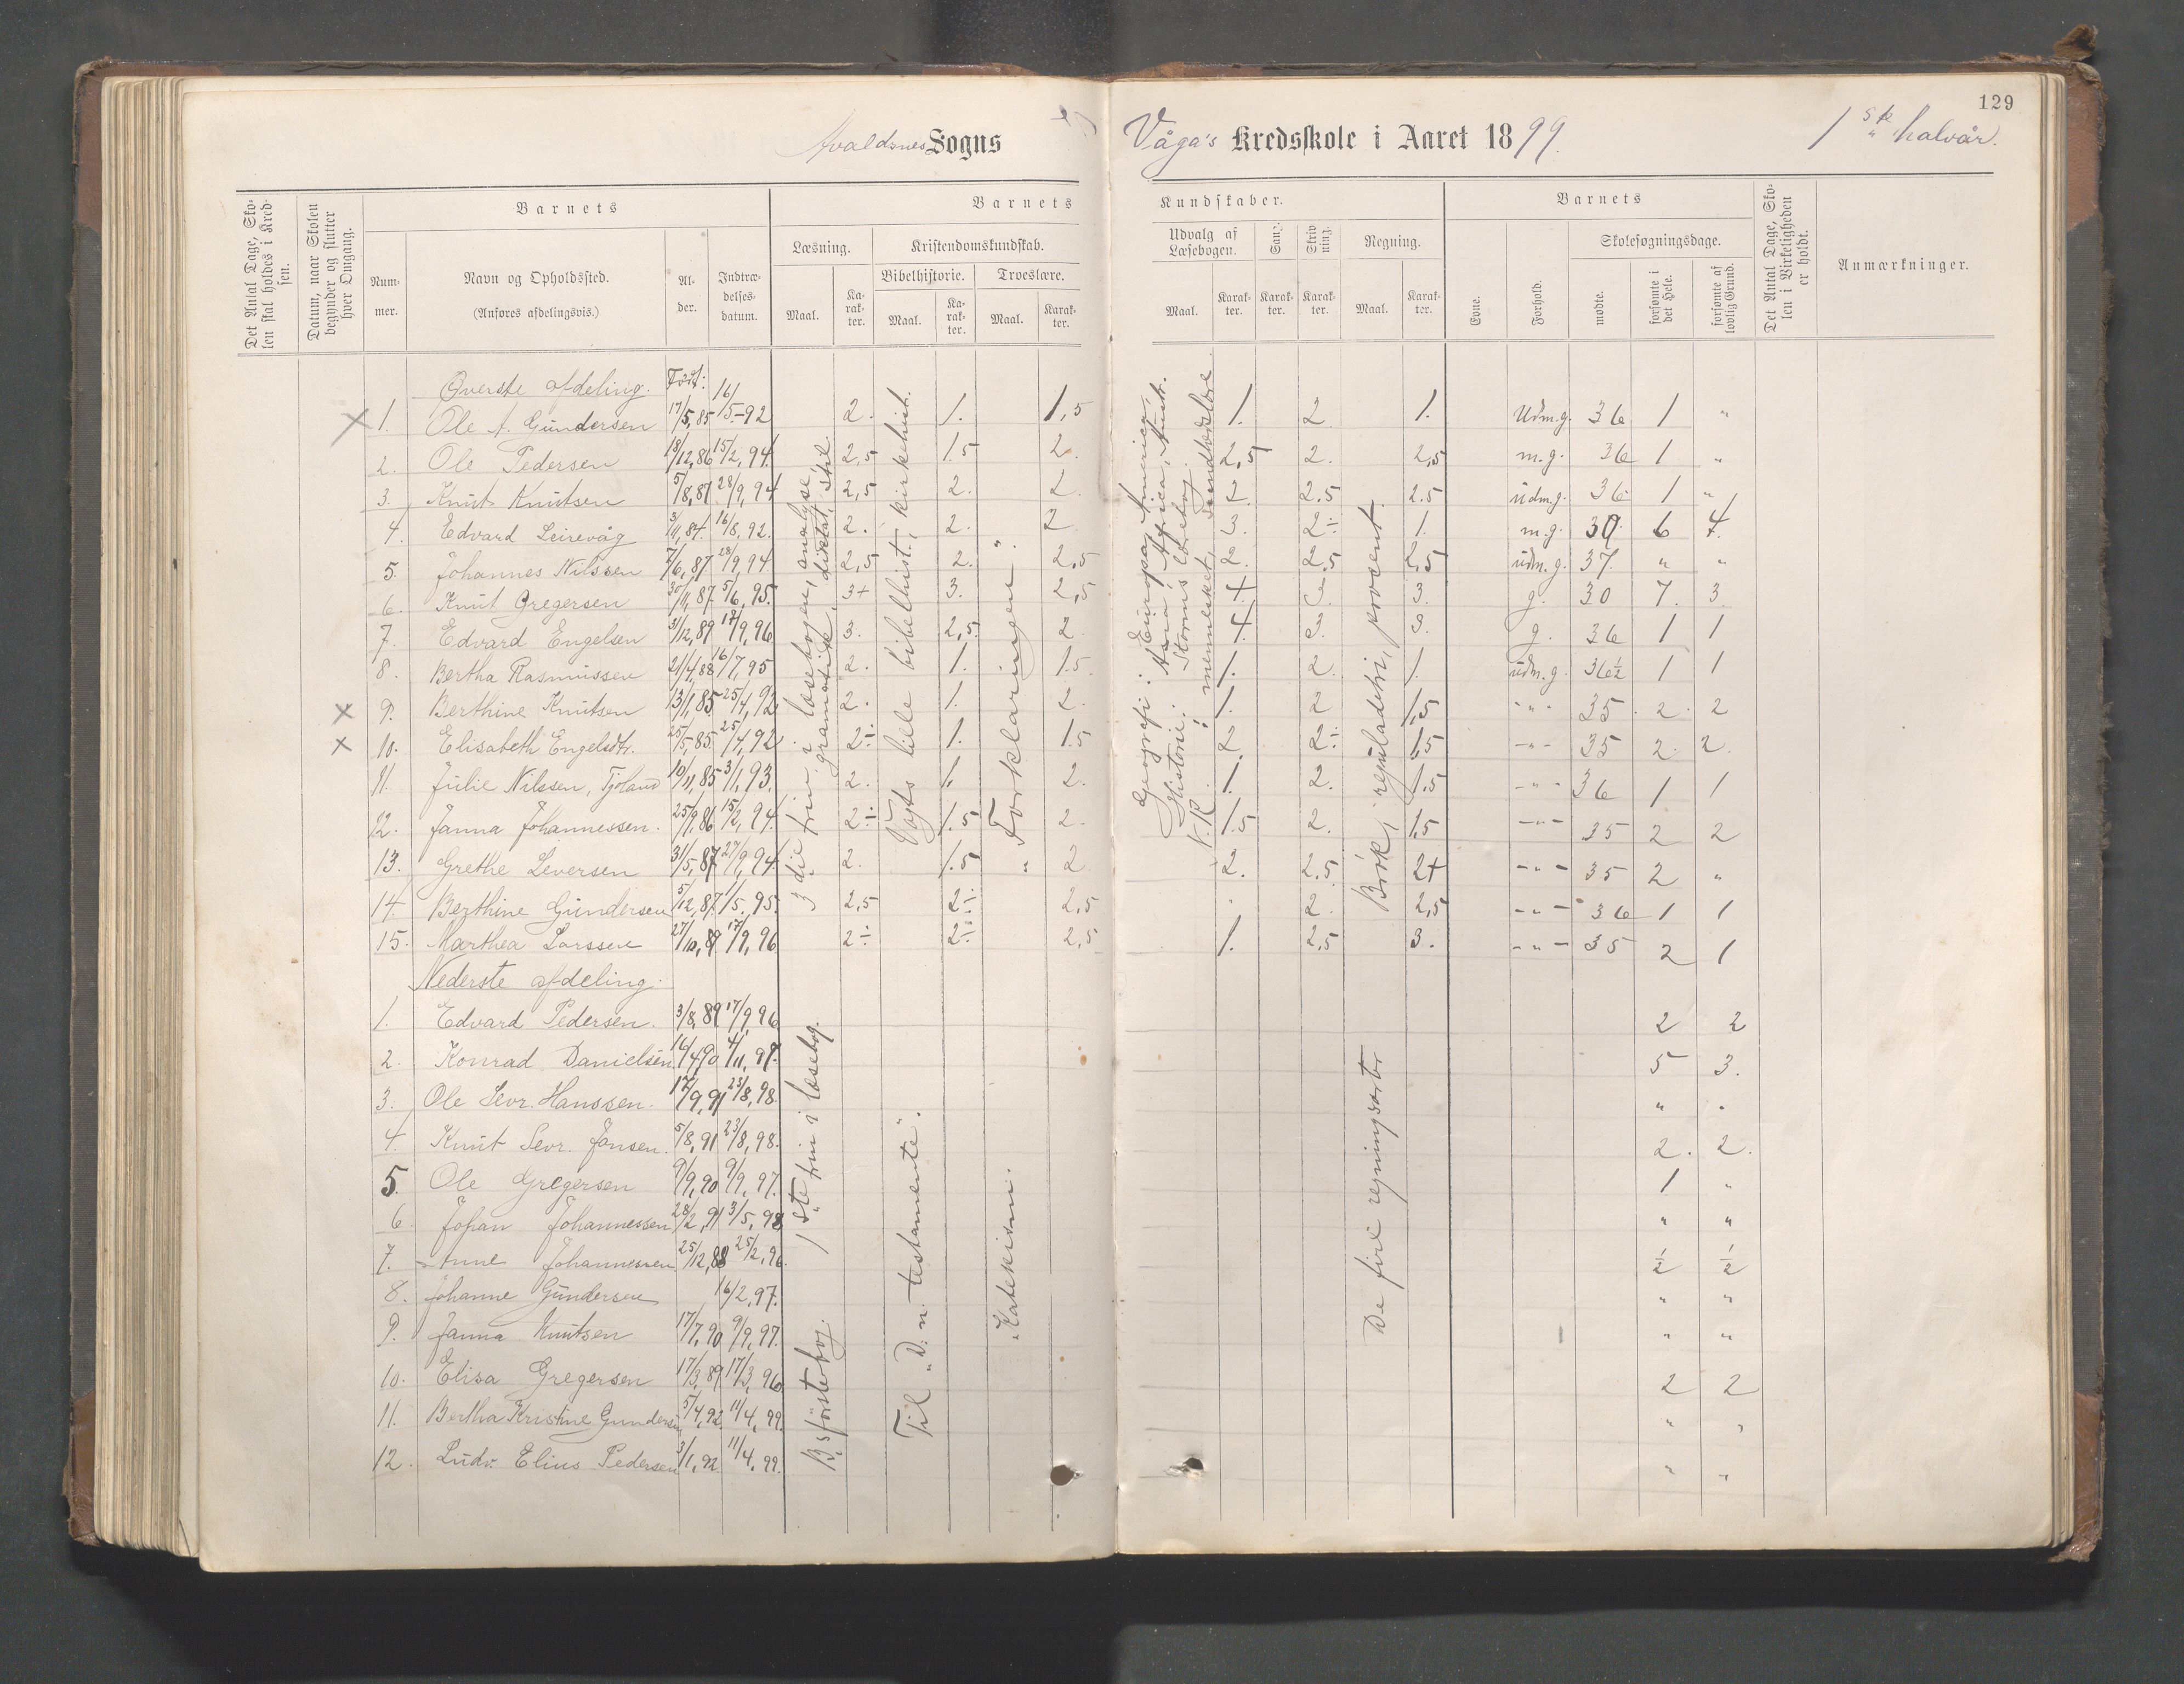 129
Avaldsnes Sogns Våga's Kredsskole i Aaret 1899. 1ste halvår.
Det Antal Dage, Skolen skal holdes i Kredsen.
Datum, naar Skolen begynder og slutter hver Omgang.
Barnets
Nummer.
Navn og Opholdssted.
(Anføres afdelingsvis.)
Alder.
Indtrædelsesdatum.
Barnets Kundskaber.
Læsning.
Maal.
Karakter.
Kristendomskundskab.
Bibelhistorie.
Maal.
Karakter.
Troeslære.
Maal.
Karakter.
Udvalg af Læsebogen.
Maal.
Karakter.
Sang.
Karakter.
Skrivning.
Karakter.
Regning.
Maal.
Karakter.
Barnets
Evne.
Forhold.
Skolesøgningsdage.
mødte.
forsømte i det Hele.
forsømte af lovlig Grund.
Det Antal Dage, Skolen i Virkeligheden er holdt.
Anmærkninger.
Øverste afdeling. Født:
× 1. Ole A. Gundersen 17/5,85 16/5-92 2. 1. 1,5 1. 2 1. Udm.g. 36 1 "
2. Ole Pedersen 18/12,86 15/2,94. 2,5 1.5 2. 2,5 2. 2,5 m.g. 36 1 "
3. Knut Knutsen 5/8,87 28/9,94 2,5 2. 2. 2 2.5 2.5 udm.g. 36 1 "
4. Edvard Leirevåg 3/11,84. 16/8,92. 2. 2. 2 3. 2÷ 1. m.g. 30 6 4.
5. Johannes Nilssen 7/6,87 28/9,94 2,5 2. 2,5 2. 2,5 2,5 udm.g. 37. " "
6. Knut Gregersen 30/11,87. 5/6,95. 3+ 3. 2,5 4 3. 3. g. 30 7. 3.
7. Edvard Engelsen 31/12,89 17/9,96 3. 2,5. 2. 4. 3. 3. g. 36 1 1
8. Bertha Rasmussen 21/4,88 16/7,95 2. 1. 1.5 1. 2. 1. udm.g. 36½ 1 1
× 9. Berthine Knutsen 13/1,85. 25/4,92 2. 1. 2. 1. 2 1,5 " 35 2. 2
× 10. Elisabeth Engelsdtr. 25/5,85. 25/4,92 2÷ 1. 1.5 2 2÷ 1,5 -"- 35 2. 2.
11. Julie Nilssen, Tjøland 10/11,85 3/1,93. 2. 1. 2. 1. 2. 1.5 -"- 36 1 1
12. Janna Johannessen. 25/9,86 15/2,94. 2÷ 1.5 2. 1.5 2. 1,5 -"- 35 2 2
13. Grethe Leversen 31/5,87 27/9,94 2. 1.5 2 2. 2,5 2+ -"- 35 2 "
14. Berthine Gundersen 5/12,87. 1/5.95. 2,5 2÷ 2,5 2. 2,5 -"- 36 1 1
15. Marthea Larssen 27/10,89. 17/9,96. 2÷ 2÷ 2,5 1. 2,5 3. -"- 35 2 1
3die trin i læsebogen, analyse,
gramatik, diktat, stil
Vogts lille bibelhist., kirkehist.
"Forklaringen".
Geografi: Europa, America,
Asia, Africa, Austr.
Historie: Storms lærebog.
N.R.: mennesket, sundhedslære
Børk, reguladetri, procent.
Nederste afdeling.
1. Edvard Pedersen. 3/8,89 17/9,96 2 2
2. Konrad Danielsen 16/4,90 4/11,97. 5 3.
3. Ole Sevr. Hanssen. 17/9,91 23/8,98. " "
4. Knut Sevr. Jansen. 5/8,91 23/8,98. 2. 2.
5. Ole Gregersen 9/9,90 9/9,97. 1 "
6. Johan Johannessen 28/2,91 3/5,98 " "
7. Anne Johannessen 25/12,88 25/2,96. ½ ½
8. Johanne Gundersen 16/2,97. " "
9. Janna Knutsen 17/7,90 9/9,97. " "
10. Elisa Gregersen 17/3,89 17/3,96 2 2
11. Bertha Kristine Gundersen 5/4,92. 11/4,99. " "
12. Ludv. Elius Pedersen 3/1,92. 11/4,99. " "
1ste trin i læsebog.
B's förstebog.
Til "D. n. testamente".
"Katekism.
De fire regningsarter